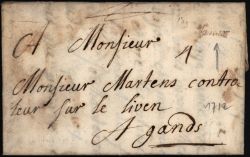 A Monsieur
4
Monsieur Martens contro
leur sur le liven
A gands
1712